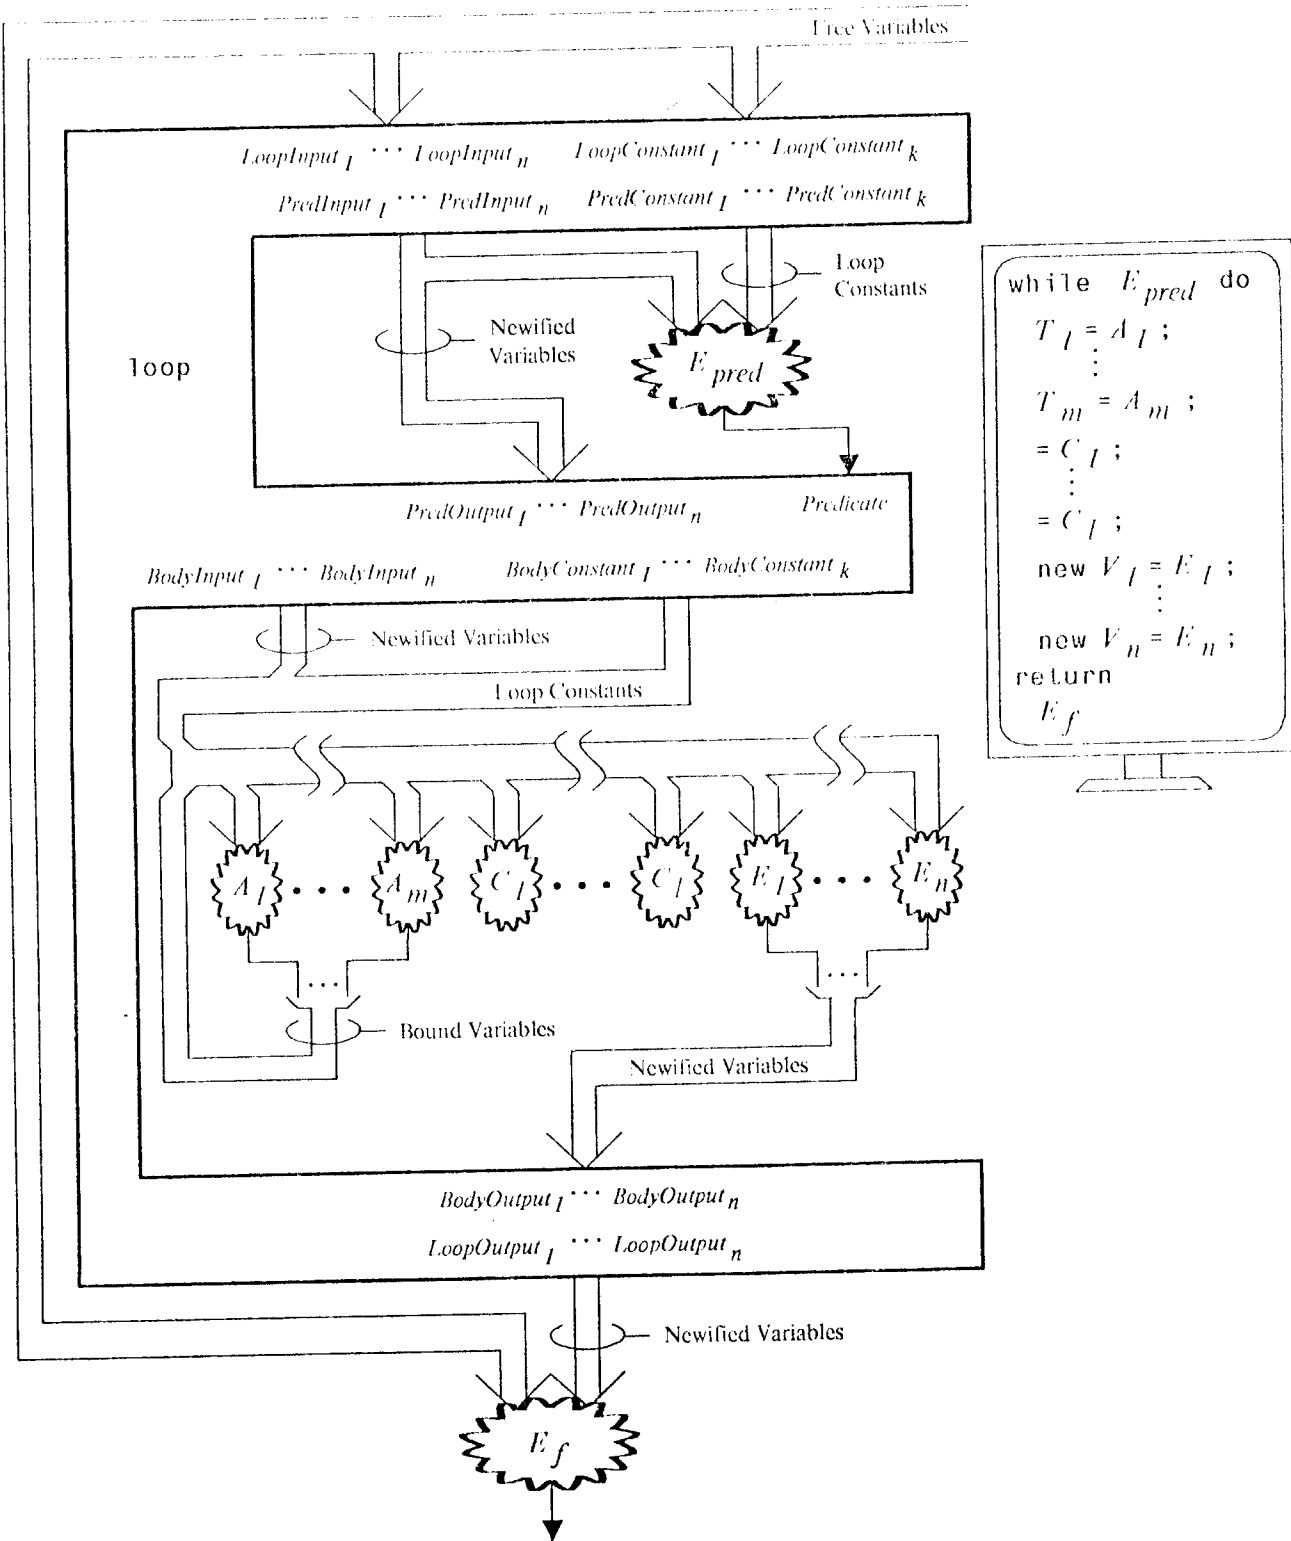 Free Variables
LoopInput_1 ··· LoopInput_n LoopConstant_1 ··· LoopConstant_k
PredInput_1 ··· PredInput_n PredConstant_1 ··· PredConstant_k
Loop
Constants
Newified
Variables
E_pred
loop
PredOutput_1 ··· PredOutput_n Predicate
BodyInput_1 ··· BodyInput_n BodyConstant_1 ··· BodyConstant_k
Newified Variables
Loop Constants
A_1 ··· A_m C_1 ··· C_l E_1 ··· E_n
···
···
Bound Variables
Newified Variables
BodyOutput_1 ··· BodyOutput_n
LoopOutput_1 ··· LoopOutput_n
Newified Variables
E_f
while E_pred do
T_1 = A_1 ;
⋮
T_m = A_m ;
= C_1 ;
⋮
= C_l ;
new V_1 = E_1 ;
⋮
new V_n = E_n ;
return
E_f